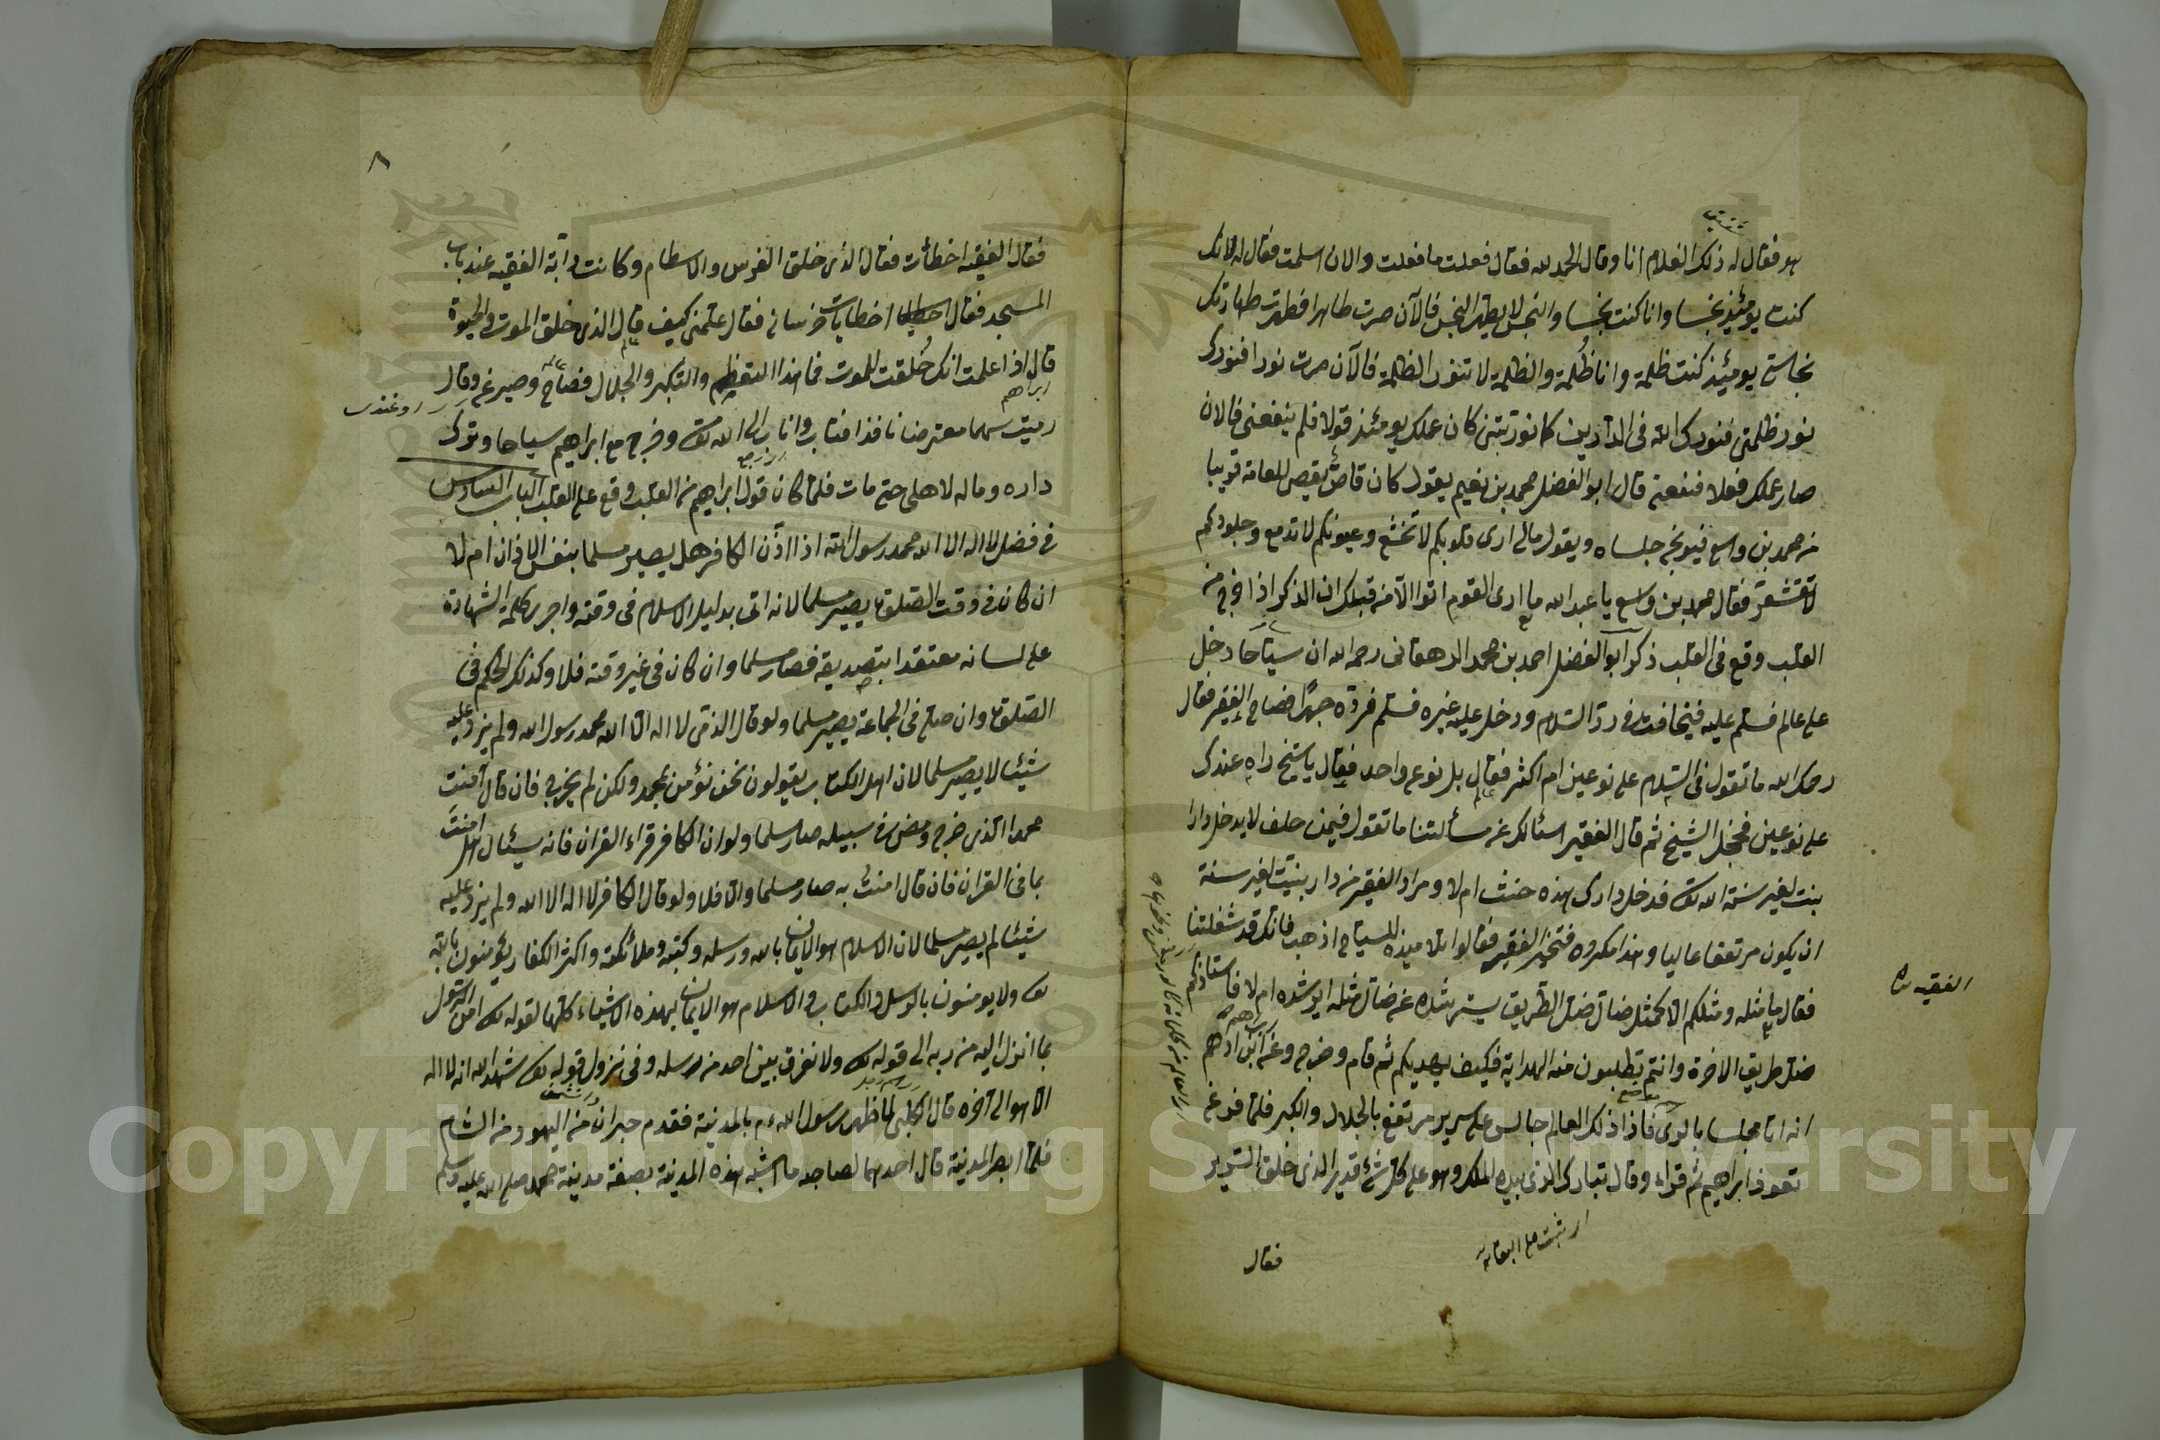 هو فقال له ذلك الغلام انا وقال الحمد لله فقال فعلت ما فعلت والان اسلمت فقال له لانك
كنت يومئذ نجسا وانا كنت نجسا والنجس لا يطهر النجس فالآن صرت طاهرا فطهرت طهارتك
نجاستي يومئذ كنت ظلمة وانا ظلمة والظلمة لا تنور الظلمة فالآن صرت نورا فنورك
نور ظلمتي فنورك الله في الدارين كما نورتني كان عملك يومئذ قولا فلم ينفعني فالان
صار عملك فعلا فنفعني قال ابو الفضل محمد بن نعيم يقول كان قاص يقص للعامة قريبا
من محمد بن واسع فيوبخ جلساه ويقول مالي ارى قلوبكم لا تخشع وعيونكم لا تدمع وجلودكم
لا تقشعر فقال محمد بن واسع يا عبد الله ما ارى القوم اتوا الا من قبلك ان الذكر اذا خرج من
القلب وقع في القلب ذكر ابو الفضل احمد بن محمد الدهقاني رحمه الله ان سياحا دخل
على عالم فسلم عليه فتخافت في رد السلام ودخل عليه غيره فسلم فرده جهرا فصاح الفقير فقال
رحمك الله ما تقول في السلام على نوعين ام اكثر فقال بل نوع واحد فقال يا شيخ راه عندك
على نوعين فخجل الشيخ ثم قال الفقير اسئالك عن مسألتنا ما تقول فيمن حلف لا يدخل دارا
بنت لغير سنة الله تعالى فدخل دارك هذه حنث ام لا ومراد الفقير من دار بنيت لغير سنة
ان يكون مرتفعا عاليا وهذا مكروه فتحير الفقير فقالوا تلاميذه للسياح اذهب فانك قد شغلتنا
فقال ما مثله ومثلكم الا كمثل ضال ضل الطريق يسترشده عن ضال مثله ايرشده ام لا فاستاذكم
ضل طريق الاخرة وانتم تطلبون منه الهداية فكيف يهديكم ثم قام وخرج وعن ابن ادهم
انه اتا مجلسا بالري فاذا ذلك العالم جالس على سرير مرتفع بالجلال والكبر فلما فرغ
تعوذ ابراهيم ثم قراء وقال تبارك الذي بيده الملك وهو على كل شئ قدير الذي خلق السرير
الفقيه
فقال
٨
فقال الفقيه اخطأت فقال الذي خلق الفرس والاسطام وكانت دابة الفقيه عند باب
المسجد فقال اخطات خرساني فقال علمني كيف قال الذي خلق الموت والحيوة
قال اذا علمت انك خلقت للموت فما هذا التعظم والتكبر والجلال فصاح وصرخ وقال
رميت سهما معترضا نافذا فتاب واناب الى الله تعالى وخرج مع ابراهيم سياحا وترك
داره وماله لاهله حتى مات فلما كان قول ابراهيم من القلب وقع على القلب الباب السادس
في فضل لا اله الا الله محمد رسول الله اذا اذن الكافر هل يصير مسلما بنفس الاذان ام لا
ان كان في وقت الصلوة يصير مسلما لانه اتى بدليل الاسلام في وقته واجرى كلمة الشهادة
على لسانه معتقدا بتصديقه فصار مسلما وان كان في غير وقته فلا وكذلك الحكم في
الصلوة وان صلى في الجماعة يصير مسلما ولو قال الذمي لا اله الا الله محمد رسول الله ولم يزد عليه
شيئا لا يصير مسلما لان اهل الكتاب يقولون نحن نؤمن بمحمد ولكن لم يخرج فان قال آمنت
محمدا الذي خرج ومضى في سبيله صار مسلما ولو ان الكافر قراء القران فانه يسئال هل امنت
بما في القران فان قال امنت به صار مسلما والا فلا ولو قال الكافر لا اله الا الله ولم يزد عليه
شيئا لم يصير مسلما لان الاسلام هو الايمان بالله ورسله وكتبه وملائكته واكثر الكفار يؤمنون بالله
تعالى ولا يومنون بالرسل والكتاب والاسلام هو الايمان بهذه الاشياء كلها لقوله تعالى امن الرسول
بما انزل اليه من ربه الى قوله تعالى ولا نفرق بين احد من رسله وفي نزول قوله تعالى شهد الله انه لا اله
الا هو الى آخره قال الكلبي لما ظهر رسول الله عم بالمدينة فقدم حبران من اليهود من الشام
فلما ابصر المدينة قال احدهما لصاحبه ما اشبه هذه المدينة بصفة مدينة محمد صلى الله عليه وسلم
Copyright © King Saud University